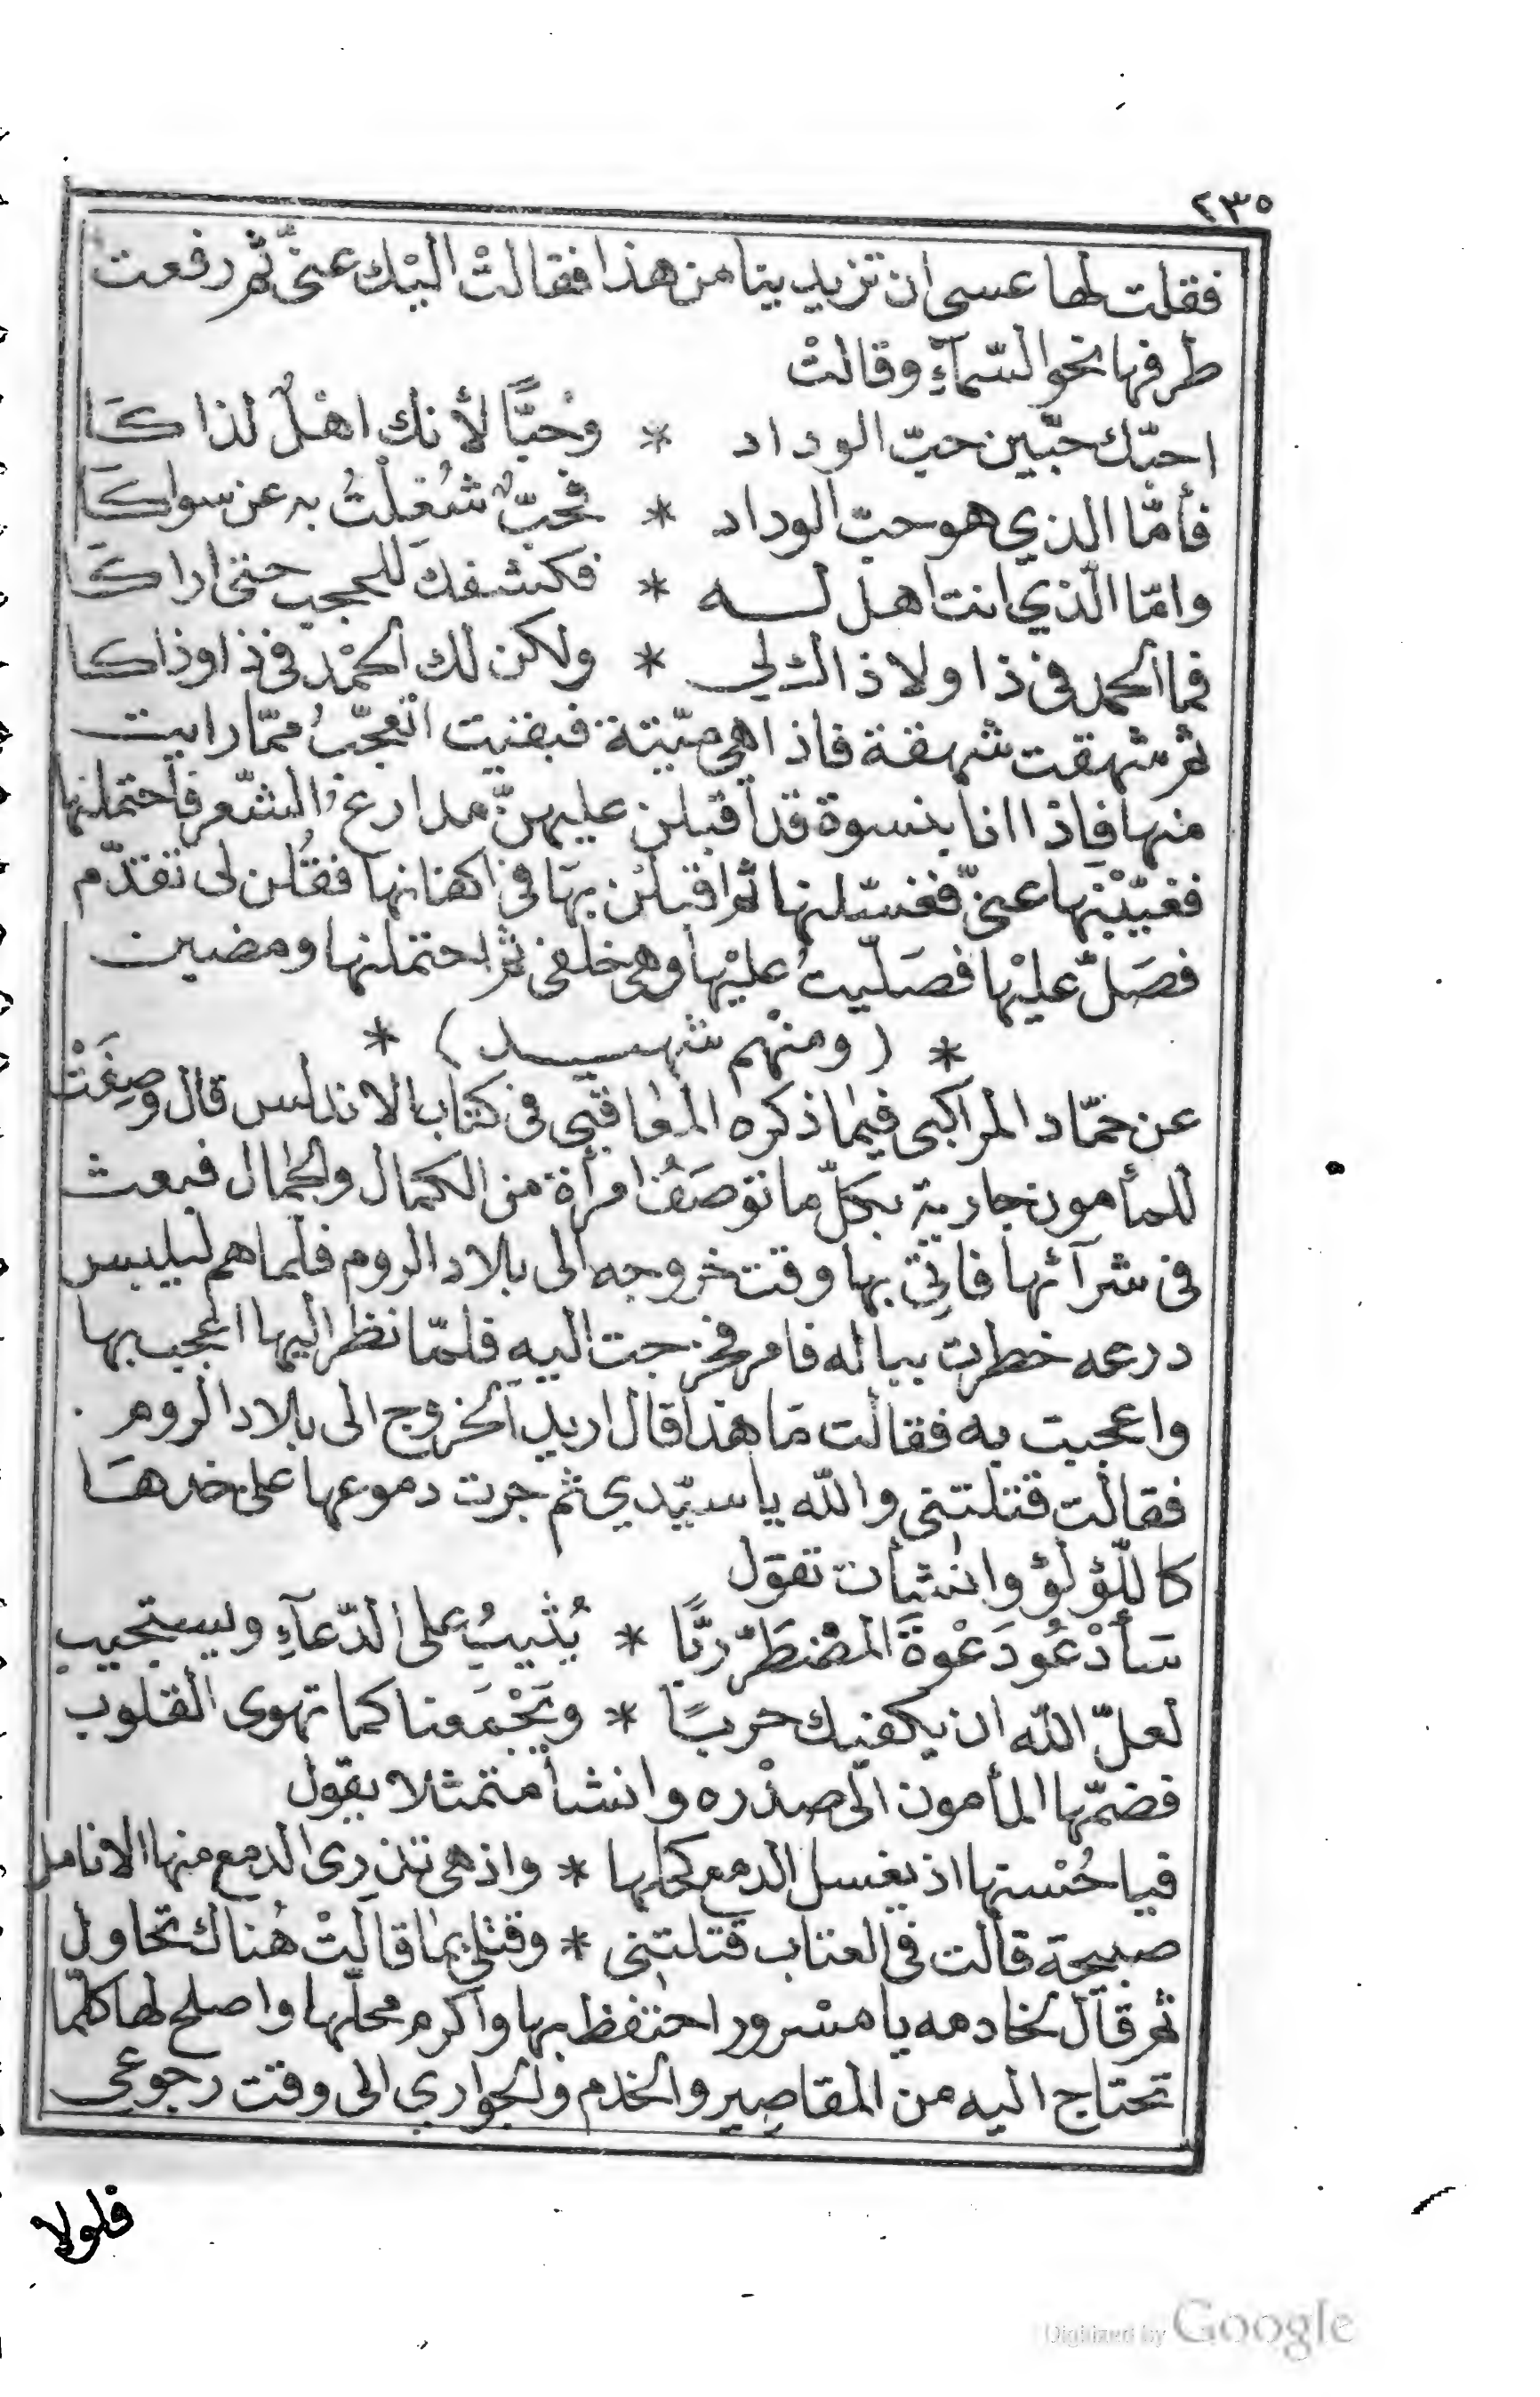 ٢٣٥
فقلت لها عسى ان تزيدينا من هذا فقالتْ اليْك عنّي ثم رفعت
طرفها نحو السّمآءِ وقالتْ
احبّك حبّين حبّ الوداد * وحُبًّا لأنك اهْلٌ لذاكَا
فأمّا الذي هو حبّ الوداد * فحُبٌّ شُغلْتُ به عن سواكَا
وامّا الّذي انت اهل له * فكشفكَ للحجب حتى اراكَا
فما الحمد فى ذا ولا ذاك لي * ولكن لك الحمْد فى ذا وذاكا
ثم شهقت شهقة فاذا هي ميّتة فبقيت اتعجّبُ ممّا رايت
منها فإذا انا بنسوة قد اقبلن عليهنَّ مدارع الشّعر فاحتملنها
فغيّبْنها عنّي فغسّلنها ثم اقبلن بها فى اكفانها فقُلن لى تقدّم
فصَلّ عليْها فصَلّيتُ عليْها وهى خلفى ثم احتملنها ومضين
* (ومنْهم شهيد) *
عن حمّاد المراكبى فيما ذكره المعافى فى كتاب الاندلس قال وصِفَتْ
للمأمون جارية بكلّ ما توصَفُ امرأة من الكمال والجمال فبعث
فى شرآئها فاتِيَ بها وقت خروجه الى بلاد الروم فلما هم ليلبس
درعه خطرت بباله فامر فخرجت اليه فلمّا نظر اليها اعجب بها
واعجبت به فقالت مَا هذا قال اريد الخروج الى بلاد الروم
فقالت قتلتنى والله يا سيّدي ثم جرت دموعها على خدهَا
كاللّؤلؤ وانشأت تقول
سَأدْعُو دَعْوةَ المضْطَرّ ربًّا * يُثيبُ على الدّعآءِ ويستجيب
لعلّ الله ان يكفيك حربًا * ويَجْمَعنا كما تهوى القلوب
فضمّها المأمون الى صدْره وانشأ متمثلا يقول
فيا حُسْنها اذ يغسل الدمع كحلها * واذ هى تذرى الدمع منها الانامل
صبيحة قالت في العتاب قتلتنى * وقتلى بما قالتْ هُناك تحاول
ثم قال لخادمه يا مسْرور احتفظ بها واكرم محلّها واصلح لها كلّما
تحتاج اليه من المقاصِير والخدم والجواري الى وقت رجوعى
فلولا
Digitized by Google